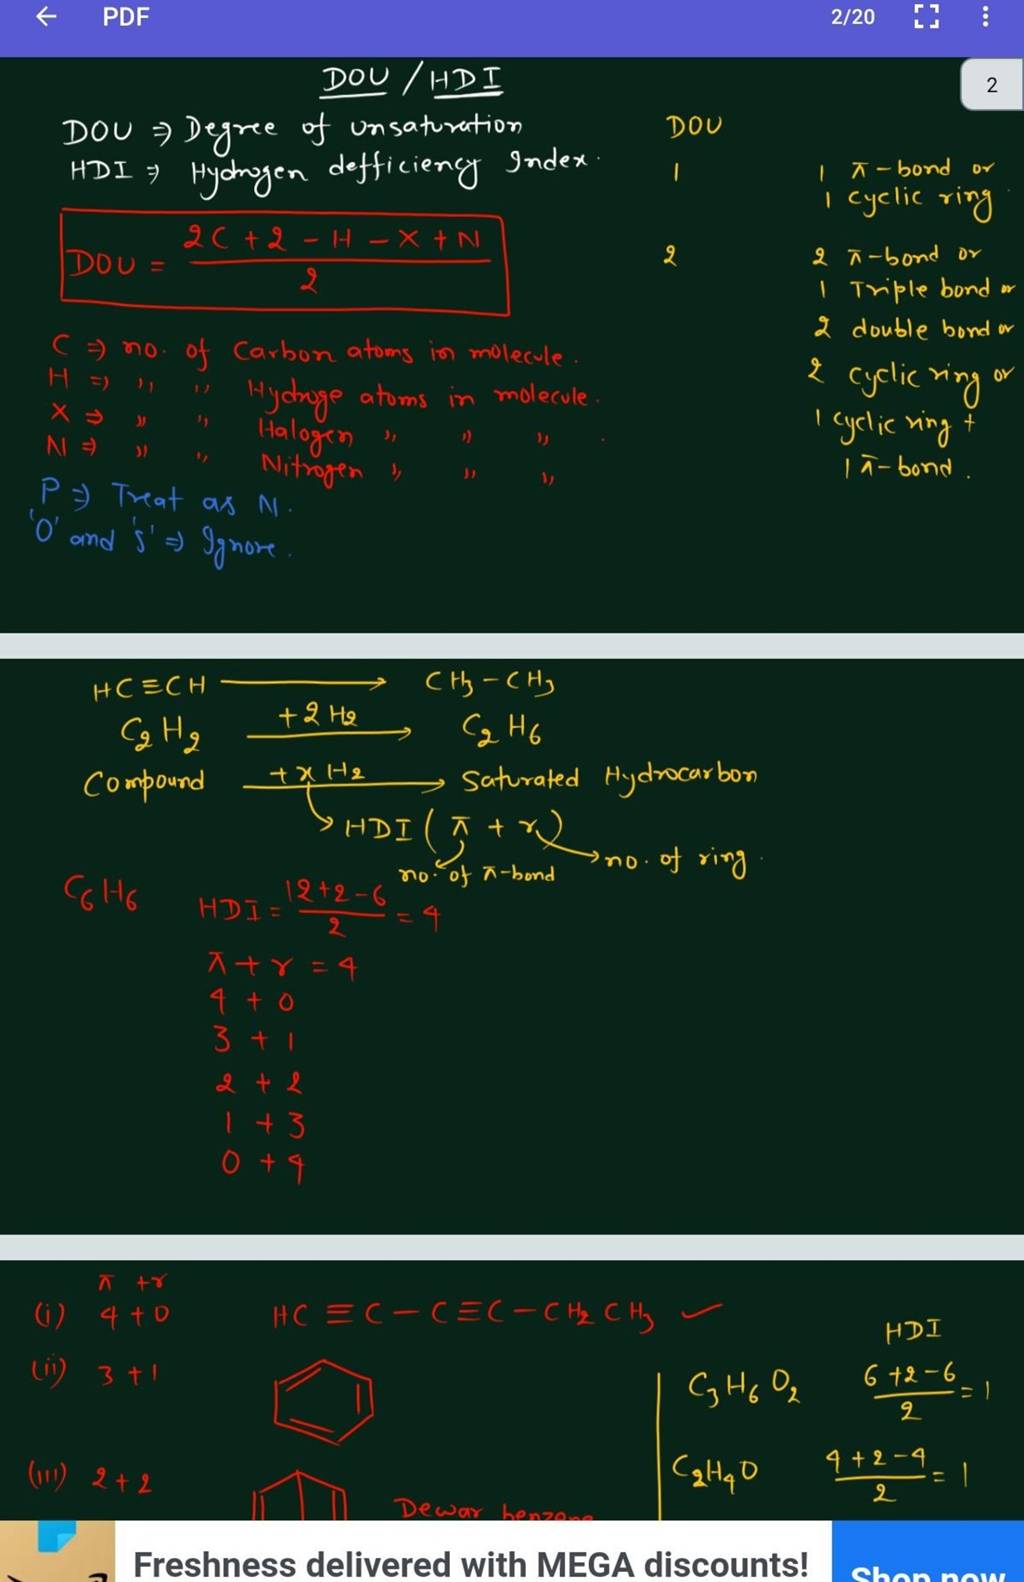 PDF
2/20
2
DOU / HDI
DOU ⇒ Degree of unsaturation
HDI ⇒ Hydrogen defficiency Index.
DOU = (2C + 2 - H - X + N) / 2
C ⇒ no. of Carbon atoms in molecule.
H ⇒ ,, ,, Hydroge atoms in molecule.
X ⇒ ,, ,, Halogen ,, ,, ,, .
N ⇒ ,, ,, Nitrogen ,, ,, ,,
P ⇒ Treat as N.
'O' and 'S' ⇒ Ignore.
DOU
1 1 π-bond or
1 cyclic ring
2 2 π-bond or
1 Triple bond or
2 double bond or
2 cyclic ring or
1 cyclic ring +
1 π-bond.
HC≡CH → CH3-CH3
C2H2 +2H2 → C2H6
Compound +xH2 → Saturated Hydrocarbon
HDI (π + r)
no. of π-bond
no. of ring.
C6H6 HDI = (12+2-6)/2 = 4
π + r = 4
4 + 0
3 + 1
2 + 2
1 + 3
0 + 4
π + r
(i) 4 + 0 HC≡C-C≡C-CH2CH3 ✓
(ii) 3 + 1
(iii) 2 + 2 Dewar benzene
HDI
C3H6O2 (6+2-6)/2 = 1
C2H4O (4+2-4)/2 = 1
Freshness delivered with MEGA discounts!
Shop now